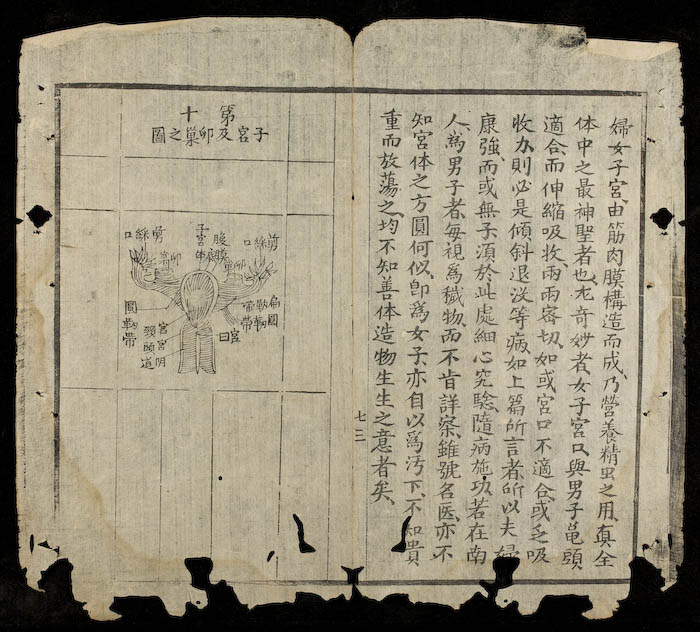 婦女子宮、由筋肉膜構造而成、乃營養精虫之用、真全
体中之最神聖者也、尤奇妙者、女子宮口、與男子龟頭
適合而伸縮吸收、兩兩密切、如或宮口不適合、或乏吸
收力、則必是傾斜退没等病、如上篇所言者、所以夫婦
康強、而或無子、須於此處細心究驗、隨病施功、若在南
人、爲男子者、每視爲穢物、而不肯詳察、雖號名医、亦不
知宮体之方圓何似、即爲女子、亦自以爲汚下、不知貴
重而放蕩之、均不知善体造物生生之意者矣、
七三
第十
子宮及卵巢之圖
剪綵口
卵巢
腹膜
子宮体底
剪綵口
扁圓
靱帶
圓靱帶
宮口
宮頸
宮頭
阴道